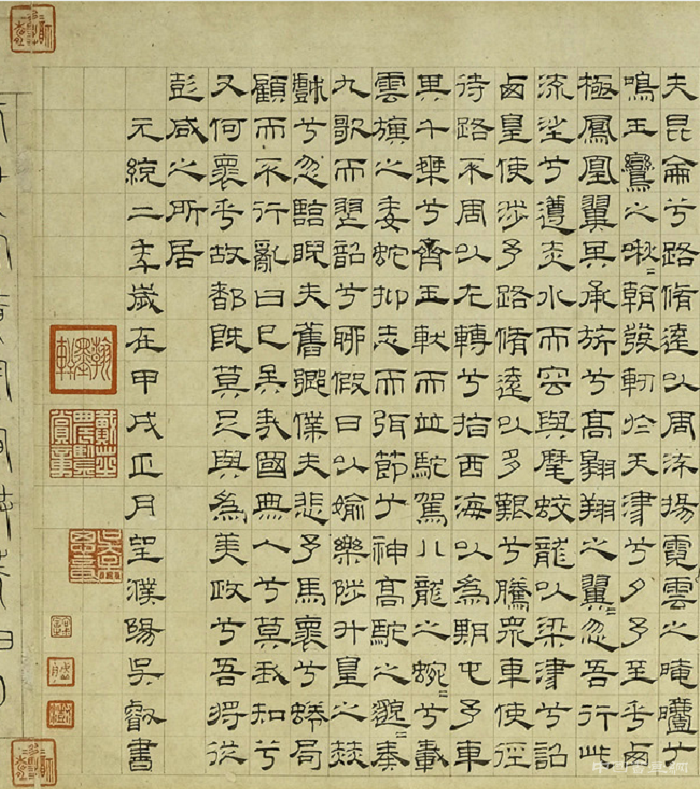 夫昆侖兮路脩遠以周流揚霓雲之晻曖兮
鳴玉鸞之啾〻朝發軔於天津兮夕予至乎西
極鳳凰翼其承旂兮高翱翔之翼〻忽吾行此
流沙兮遵赤水而容與麾蛟龍以梁津兮詔
西皇使涉予路脩遠以多艱兮騰眾車使徑
待路不周以左轉兮指西海以為期屯予車
其千乘兮齊玉軑而並馳駕八龍之蜿〻兮載
雲旗之委蛇抑志而弭節兮神高馳之邈〻奏
九歌而舞韶兮聊假日以媮樂陟升皇之赫
戲兮忽臨睨夫舊鄉僕夫悲予馬懷兮蜷局
顧而不行亂曰已矣哉國無人兮莫我知兮
又何懷乎故都既莫足與為美政兮吾將從
彭咸之所居
元統二年歲在甲戌正月望濮陽吳叡書
翰墨軒